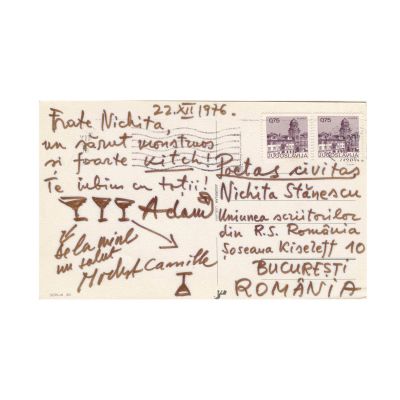 22.XII 1976.
Frate Nichita,
un sărut monstruos
si foarte kitch!
Te iubim cu toții!
Adam
și
de la mine
un salut
Modest Camille
0,75 0,75
JUGOSLAVIJA JUGOSLAVIJA
Poetas civitas
Nichita Stănescu
Uniunea scriitorilor
din R.S. România
Șoseaua Kiseleff 10
BUCUREȘTI
ROMÂNIA